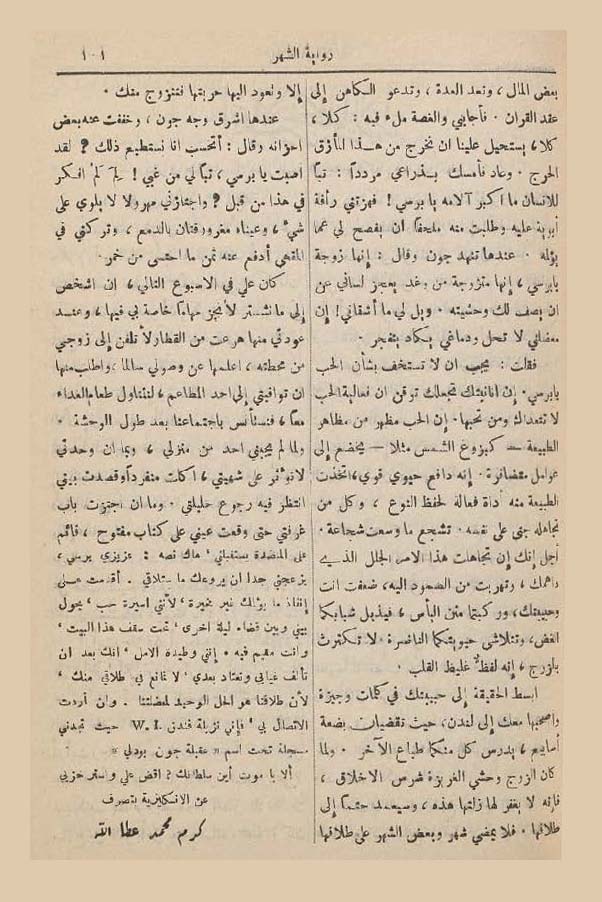 رواية الشهر
١٠١
بعض المال ، ونعد العدة ، وتدعو الكاهن إلى
عقد القران . فأجابني والغصة ملء فيه : كلا ،
كلا ، يستحيل علينا ان نخرج من هذا المأزق
الحرج . وعاد فأمسك بذراعي مردداً : تباً
للانسان ما اكبر آلامه يا برسي ! فهزتني رأفة
أبوية عليه وطلبت منه ملحفاً أن يفصح لي عما
يؤلمه . عندها تنهد جون وقال : إنها زوجة
يابرسي ، إنها متزوجة من وغد يعجز لساني عن
ان يصف لك وحشيته . ويل لي ما أشقاني ! إن
معضلتي لا تحل ودماغي يكاد يتفجر .
فقلت : يجب ان لا تستخف بشأن الحب
يابرسي . إن انانيتك تجعلك توقن ان فعالية الحب
لا تتعداك ومن تحبها . إن الحب مظهر من مظاهر
الطبيعة — كبزوغ الشمس مثلا — يخضع إلى
عوامل متضافرة . إنه دافع حيوي قوي ، اتخذت
الطبيعة منه أداة فعالة لحفظ النوع ، وكل من
تجاهله جنى على نفسه . تشجع ما وسعت شجاعة .
أجل إنك إن تجاهلت هذا الامر الجلل الذي
داهمك ، وتهربت من الصمود اليه ، ضعفت انت
وحبيبتك ، وركبتما متن اليأس ، فيذبل شبابكما
الغض ، وتتلاشى حيويتكما الناضرة . لا تكترث
بالزوج ، إنه لفظٌ غليظ القلب .
ابسط الحقيقة إلى حبيبتك في كلمات وجيزة
واصحبها معك إلى لندن ، حيث تقضيان بضعة
أسابيع ، يدرس كل منكما طباع الآخر . ولما
كان الزوج وحشي الغريزة شرس الاخلاق ،
فانه لا يغفر لها زلتها هذه ، وسيعمد حتماً إلى
طلاقها . فلا يمضي شهر وبعض الشهر على طلاقها
إلا وتعود اليها حريتها فتتزوج منك .
عندها اشرق وجه جون ، وخففت عنه بعض
احزانه وقال : أتحسب انا نستطيع ذلك ? لقد
اصبت يا برسي ، تباً لي من غبي ! لِمَ لَمْ افكر
في هذا من قبل ? واجتازني مهرولا لا يلوي على
شيء ، وعيناه مغرورقتان بالدمع ، وتركني في
المقهى أدفع عنه ثمن ما احتسى من خمر .
كان علي في الاسبوع التالي ، ان اشخص
إلى مانشستر لأنجز مهاماً خاصة بي فيها ، وعند
عودتي منها هرعت من القطار لأ تلفن إلى زوجي
من محطته ، اعلمها عن وصولي سالما ، واطلب منها
ان توافيني إلى احد المطاعم ، لنتناول طعام الغداء
معاً ، فنستأنس باجتماعنا بعد طول الوحشة .
ولما لم يجبني احد من منزلي ، وبما ان وحدتي
لا تؤثر على شهيتي ، اكلت منفرداً وقصدت بيتي
انتظر فيه رجوع حليلتي . وما ان اجتزت باب
غرفتي حتى وقعت عيني على كتاب مفتوح ، قائم
على المنضدة يستقبلني ، هاك نصه : عزيزي برسي ،
يزعجني جدا ان يروعك ما ستلاقي . أقدمت على
إنفاذ ما يؤلمك غير مخيرة ، لأنني اسيرة حب ، يحول
بيني وبين قضاء ليلة اخرى ، تحت سقف هذا البيت ،
وانت مقيم فيه . إنني وطيدة الامل ، انك بعد ان
تألف غيابي وتعتاد بعدي ، لا تمانع في طلاقي منك ،
لأن طلاقنا هو الحل الوحيد لمعضلتنا . وان اردت
الاتصال بي ، فإني نزيلة فندق W. I. حيث تجدني
مسجلة تحت اسم « عقيلة جون بودلي »
ألا يا موت أين سلطانك ? اقض علي واستر خزيي
عن الانكليزية بتصرف
كرم محمد عطا الله